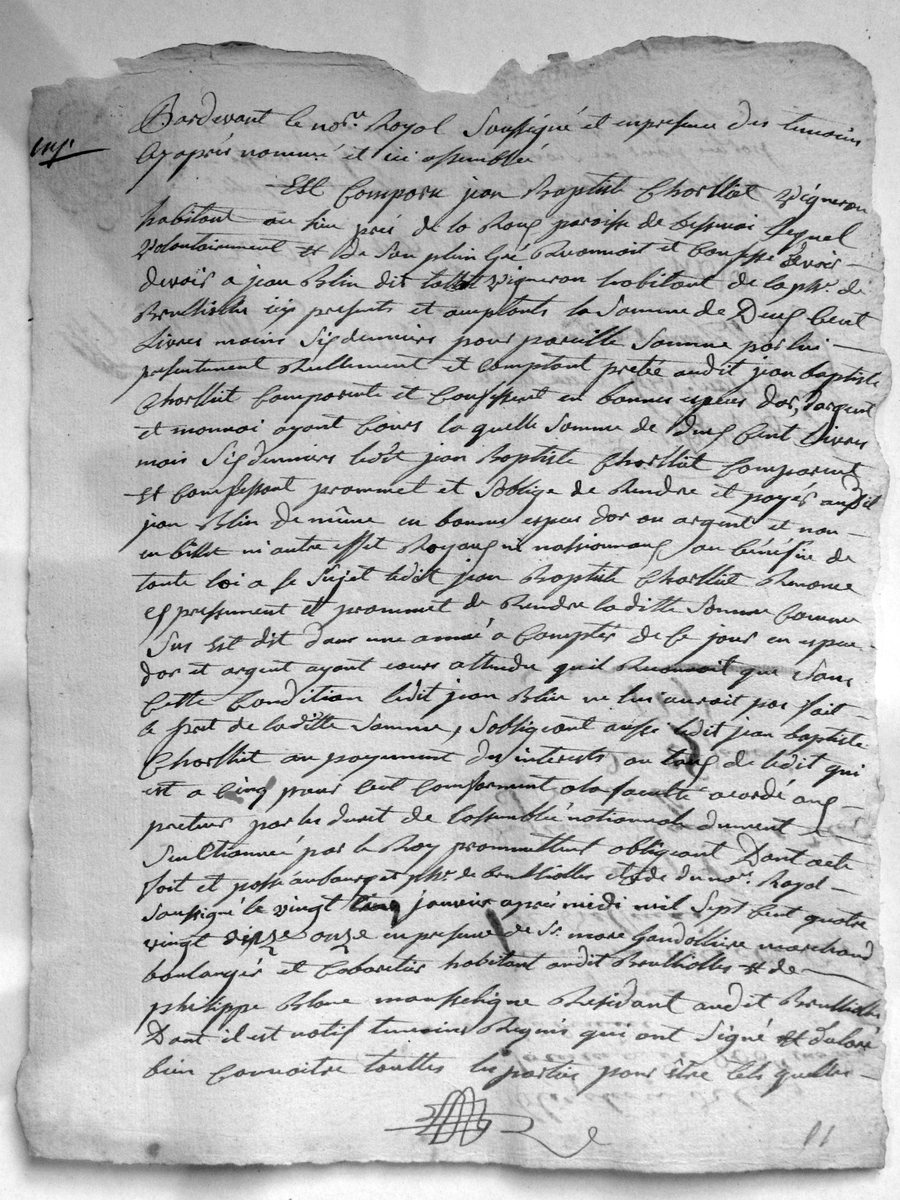 Pardevant le no.re Royal Soussigné et en presence des temoins
Cy après nommé et ici assemblée
Est Comparu jean Baptiste Chorlliat Vigneron
habitant au lieu près de la paroisse de Bessenai Lequel
Volontairement et de Son plein Gré Reconnoit et Confesse devoir
devoir a jean Blin dit Vigneron habitant de la ph.e de
Brullioles icy presents et acceptants la Somme de Deux Cent
Livres moins Six denniers pour pareille Somme par lui
presentement Rellement et Comptant pretée audit jean baptiste
Chorlliat Comparent et Confessent en bonnes especes d'or, d'argent
et monnoi ayant Cours la quelle Somme de deux Cent Livres
mois Six denniers ledit jean Baptiste Chorlliat Comparent
et Confessant prommet et Soblige de Rendre et payés audit
jean Blin de même en bonnes espces dor ou argent et non
en billet ni autre effet Royaux ni nassionnaux au bénéfice de
toute loi a ce Sujet ledit jean Baptiste Chorlliat Renonce
expressement et prommet de Rendre laditte Somme Comme
Sus Est dit dans une année a Compter de Ce jour en espece
dor et argent ayant cours attendu qu'il Reconnoit que Sans
Cette Condition ledit jean Blin ne lui auroit pas fait
le pret de laditte Somme, Sobligeant aussi ledit jean baptiste
Chorlliat au payement des interests au taux de ledit qui
est a Cinq pour Cent Conforment a la faculté acordé aux
preteur par les decret de Lassemblée nationnal dument
Sanctionnée par le Roy promettent obligeant Dont acte
fait et passé au bourg et ph.e de brullioles etude du no.re Royal
Soussigné le vingt Cinq janvier après midi mil Sept Cent quatre
vingt onze en presence de S.r marc Gaudollière marchand
boulangér et Cabaretier habitant audit Brullioles et de
philippe Blanc Résidant audit Brullioles
Dont il est natif temoins Requis qui ont Signé et declaré
bien Connoitre touttes les parties pour être tels quelles
11